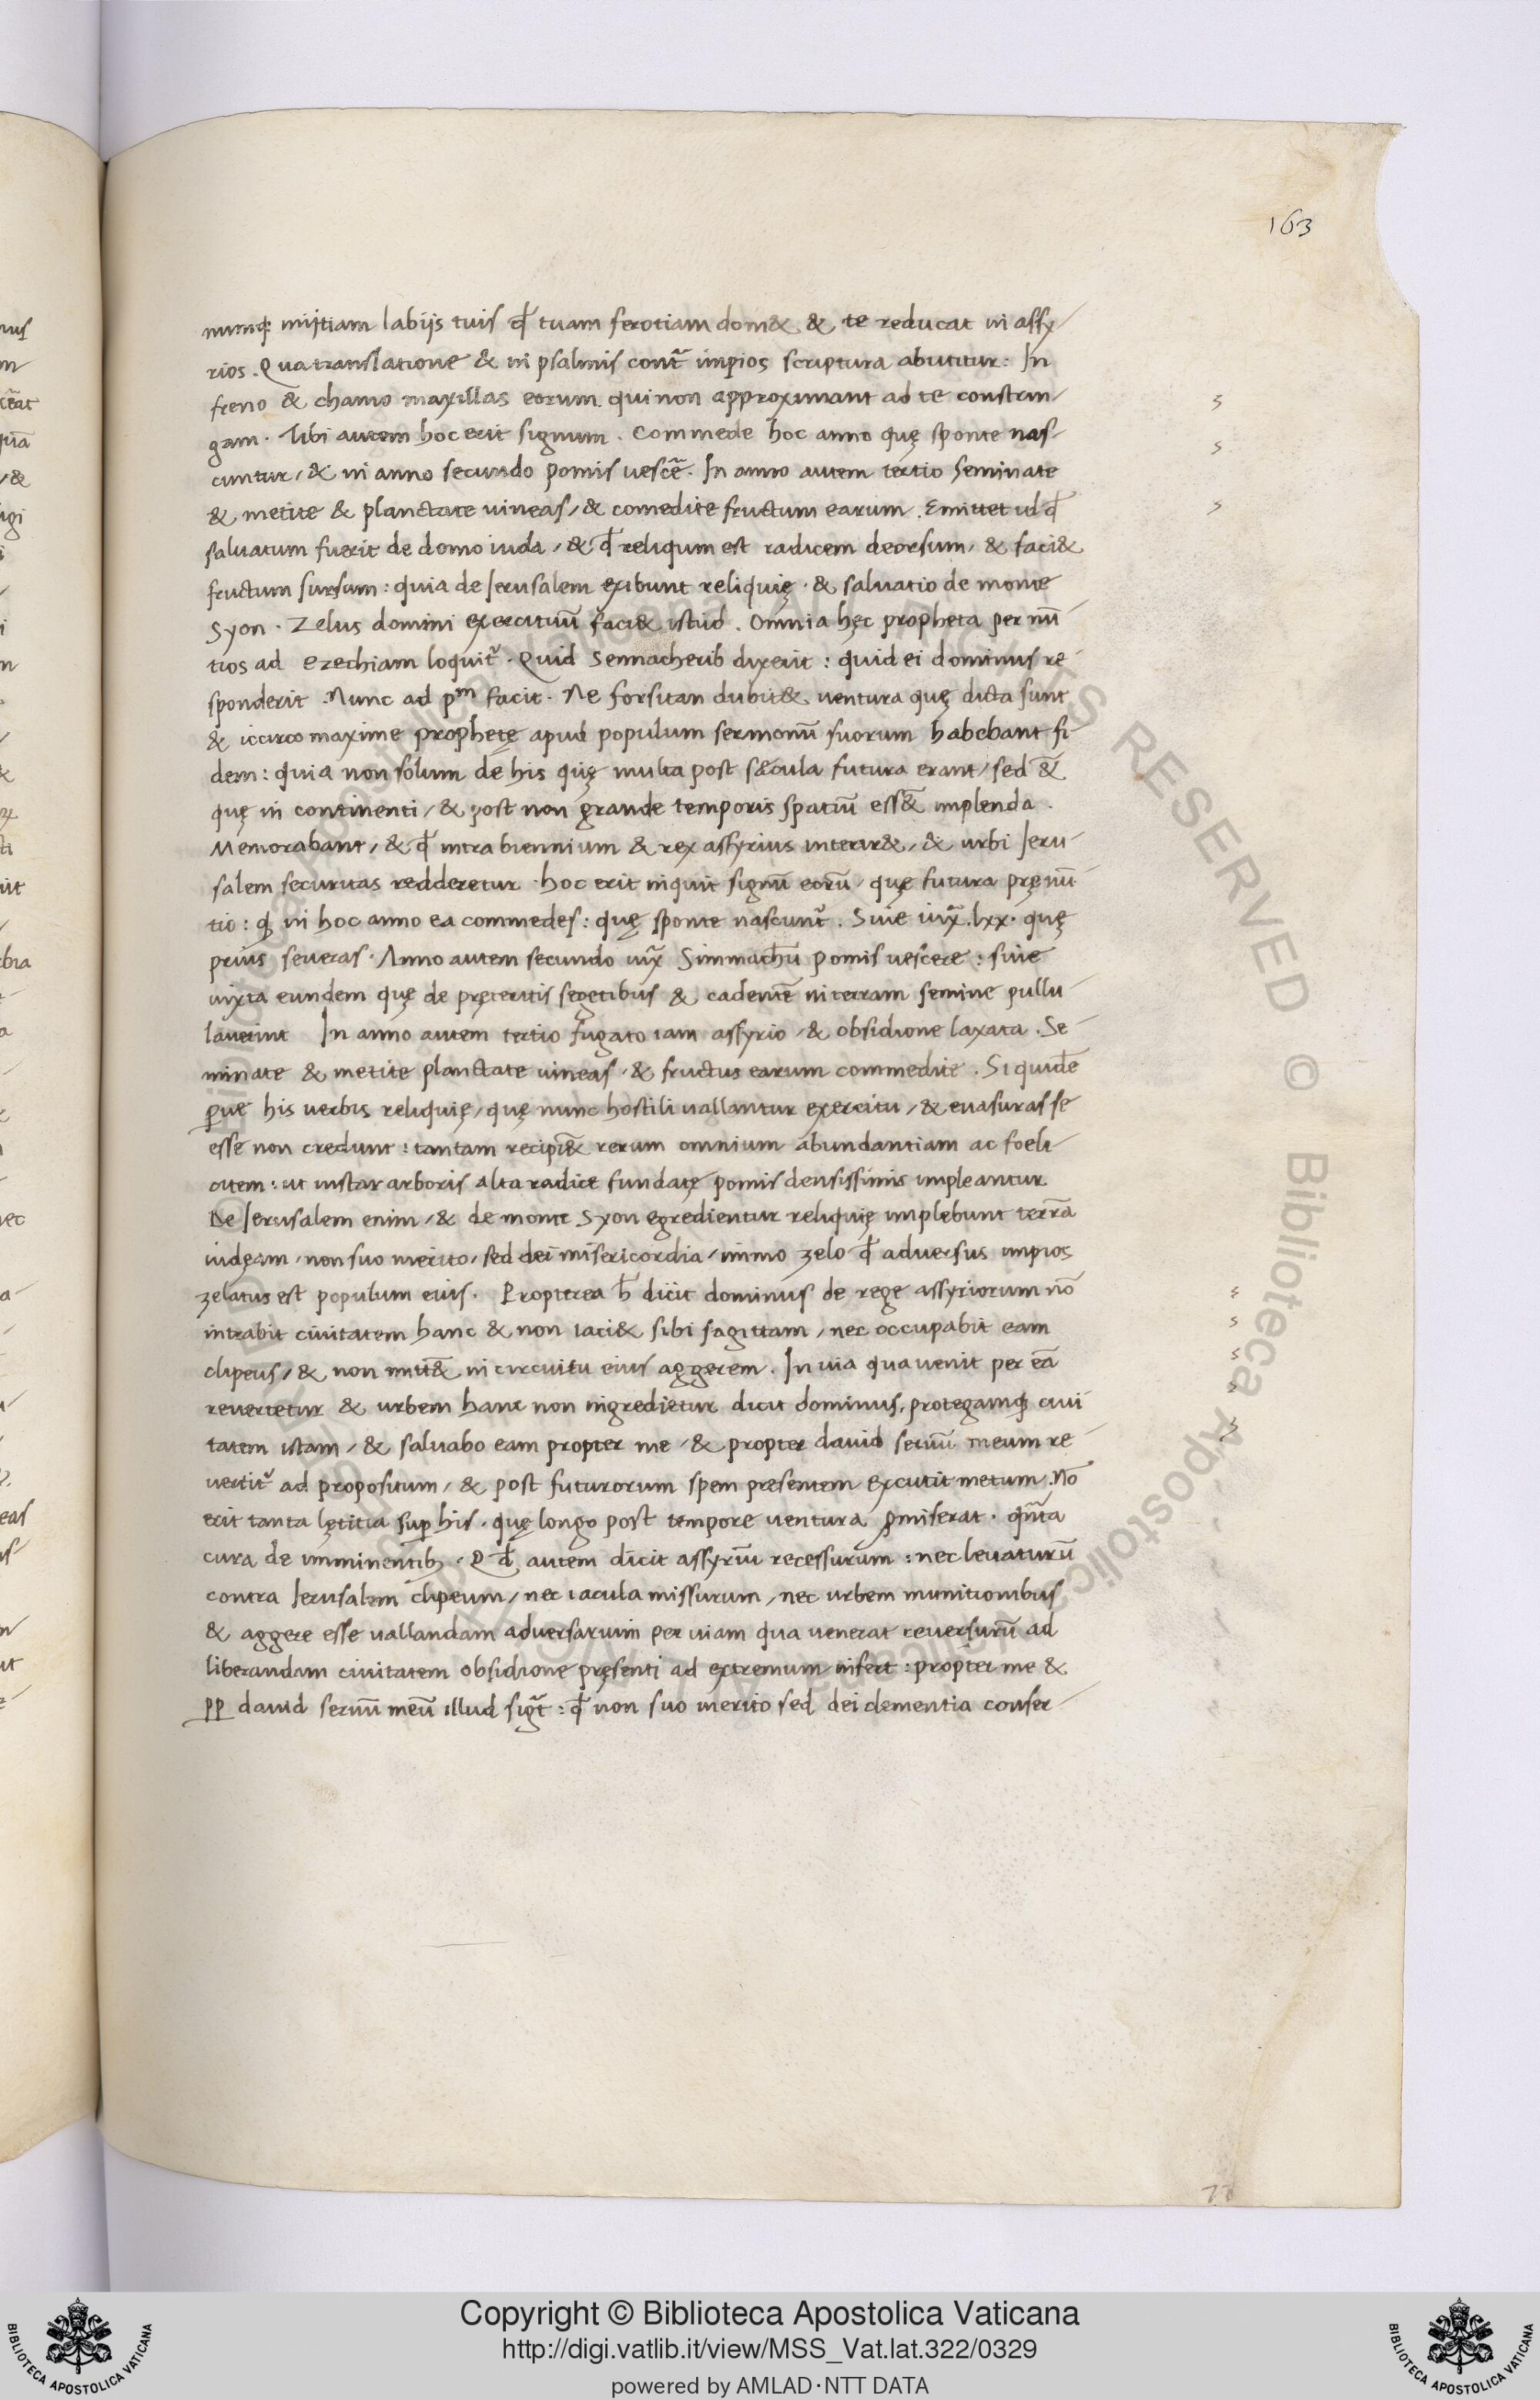 163
numq; mittiam labijs tuis qđ tuam ferotiam dom& & te reducat in assy/
rios. Qua translatione & in psalmis cont̃ impios scriptura abutitur: In
freno & chamo maxillas eorum qui non approximant ad te constrin/
gam. Tibi autem hoc erit signum. Commede hoc anno quę sponte nas/
cuntur/ & in anno secundo pomis vescẽ. In anno autem tertio seminate
& metite & planctate vineas/ & comedite fructum earum. Emittet id qđ
saluatum fuerit de domo iuda/ & qđ reliqum est radicem deorsum/ & faci&
fructum sursum: quia de Jerusalem exibunt reliquię. & saluatio de monte
Syon. Zelus domini exercituũ faci& istud. Omnia hęc propheta per nũ/
tios ad ezechiam loquit̃. Quid Sennacherib dixerit: quid ei dominus re/
sponderit. Nunc ad pm facit. Ne forsitan dubit& ventura quę dicta sunt
& iccirco maxime prophetę apud populum sermonũ suorum habebant fi/
dem: quia non solum de his quę multa post sæcula futura erant/ sed &
quę in continenti/ & post non grande temporis spatiũ ess& implenda.
Memorabant/ & qđ intra biennium & rex assyrius interir&/ & urbi Jeru/
salem securitas redderetur. hoc erit inquit signũ eorũ/ quę futura prę nũ/
tio: q; in hoc anno ea commedes: quę sponte nascunt̃. Siue iux̃. lxx. quę
prius seueras. Anno autem secundo iux̃ Simmachũ pomis vescere: siue
iuxta eundem quę de pręteritis segetibus & cadentẽ in terram semine pullu/
lauerint In anno autem tertio fugato iam assyrio/ & obsidione laxata. Se/
minate & metite planctate vineas/ & fructus earum commedite. Siquidẽ
ꝑue his verbis reliquię/ quę nunc hostili uallantur exercitu/ & euasuras se
esse non credunt: tantam recipi& rerum omnium abundantiam ac foeli/
citem: ut instar arboris alta radice fundatę pomis densissimis impleantur.
De Jerusalem enim/ & de monte Syon egredientur reliquię implebunt terrã
iudęam/ non suo merito/ sed dei misericordia/ immo zelo qđ adversus impios
zelatus est populum eius. Propterea h̄ dicit dominus de rege assyriorum nõ
intrabit ciuitatem hanc & non iaci& sibi sagittam/ nec occupabit eam
clipeus/ & non mitt& in circuitu eius aggerem. In uia qua uenit per eã
revertetur & urbem hanc non ingredietur dicit dominus, protegamq; ciui/
tatem istam/ & saluabo eam propter me/ & propter dauid seruũ meum re/
vertit̃ ad propositum/ & post futurorum spem presentem excutit metum. Nõ
erit tanta lętitia suꝑ his. quę longo post tempore ventura ꝓmiserat. qñta
cura de imminentib;. Qđ autem dicit assyriũ recessurum: nec leuaturũ
contra Jerusalem clipeum/ nec iacula missurum/ nec urbem munitionibus
& aggere esse uallandam adversarium per uiam qua venerat reuersurũ ad
liberandam ciuitatem obsidione pręsenti ad extremum infert: propter me &
pp dauid seruũ meũ illud sigt̃: qđ non suo merito sed dei clementia conser/
Copyright © Biblioteca Apostolica Vaticana
http://digi.vatlib.it/view/MSS_Vat.lat.322/0329
powered by AMLAD·NTT DATA
BIBLIOTECA APOSTOLICA VATICANA
BIBLIOTECA APOSTOLICA VATICANA